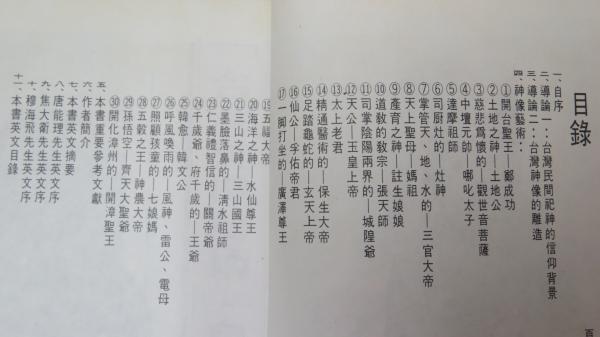 目錄
一、自序
二、導論一:台灣民間祀神的信仰背景
三、導論二:台灣神像的雕造
四、神像藝術:
①開台聖王—鄭成功
②土地之神—土地公
③慈悲爲懷的—觀世音菩薩
④中壇元帥—哪叱太子
⑤達摩祖師
⑥司厨灶的—灶神
⑦掌管天、地、水的—三官大帝
⑧天上聖母—媽祖
⑨產育之神—註生娘娘
⑩道敎的敎宗—張天師
⑪司掌陰陽兩界的—城隍爺
⑫天公—玉皇上帝
⑬太上老君
⑭精通醫術的—保生大帝
⑮足踏龜蛇的—玄天上帝
⑯仙公—孚佑帝君
⑰一脚打坐的—廣澤尊王
⑲五福大帝
⑳海洋之神—水仙尊王
㉑三山之神—三山國王
㉒墨臉落鼻的—淸水祖師
㉓仁義禮智信的—關帝爺
㉔千歲爺、府千歲的—王爺
㉕韓愈—韓文公
㉖呼風喚雨的—風神、雷公、電母
㉗照顧孩童的—七娘媽
㉘五穀之王—神農大帝
㉙孫悟空—齊天大聖爺
㉚開化漳州的—開漳聖王
五、本書重要參考文獻
六、作者簡介
七、本書英文摘要
八、唐能理先生英文序
九、焦大衛先生英文序
十、穆海飛先生英文序
十一、本書英文目錄
頁